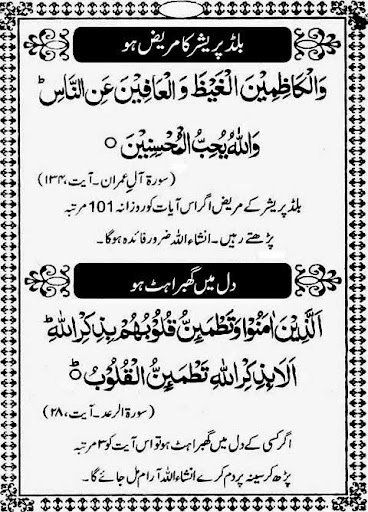 بلڈ پریشر کا مریض ہو
وَالْكَاظِمِيْنَ الْغَيْظَ وَالْعَافِيْنَ عَنِ النَّاسِ ؕ
وَاللّٰهُ يُحِبُّ الْمُحْسِنِيْنَ ○
(سورۃ آلِ عمران ۔ آیت، ۱۳۴)
بلڈ پریشر کے مریض اگر اس آیات کو روزانہ 101 مرتبہ
پڑھتے رہیں ۔ انشاء اللہ ضرور فائدہ ہوگا ۔
دل میں گھبراہٹ ہو
اَلَّذِيْنَ اٰمَنُوْا وَتَطْمَئِنُّ قُلُوْبُهُمْ بِذِكْرِ اللّٰهِ ؕ
اَلَا بِذِكْرِ اللّٰهِ تَطْمَئِنُّ الْقُلُوْبُ ؕ○
(سورۃ الرعد ۔ آیت، ۲۸)
اگر کسی کے دل میں گھبراہٹ ہو تو اس آیت کو ۳ مرتبہ
پڑھ کر سینہ پر دم کرے انشاء اللہ آرام مل جائے گا ۔